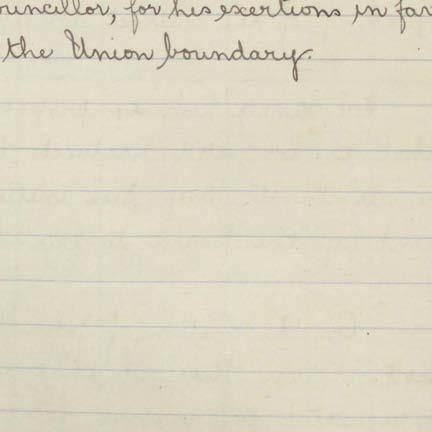 ouncillor, for his exertions in fav
the Union boundary.